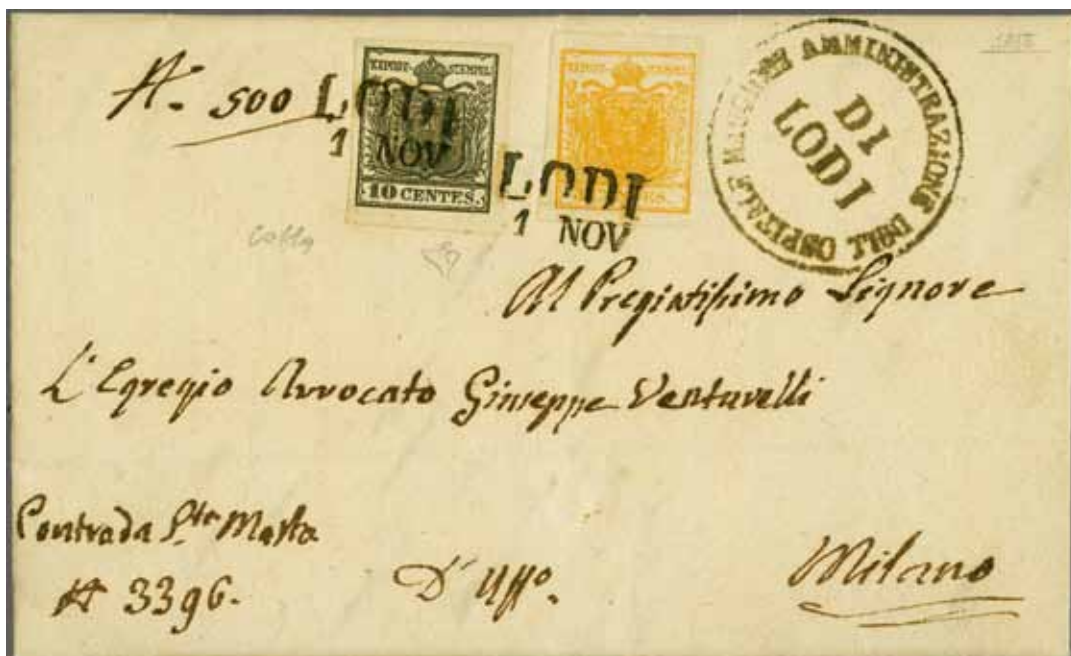 N. 500
KKPOST-STEMPEL
10 CENTES.
KKPOST-STEMPEL
ES.
LODI
1 NOV
LODI
1 NOV
AMMINISTRAZIONE DELL' OSPITALE MAGGIORE
DI
LODI
colla
Al Pregiatissimo Signore
L'Egregio Avvocato Giuseppe Venturelli
Contrada Sta Marta
N 3396.
D'Uffo.
Milano